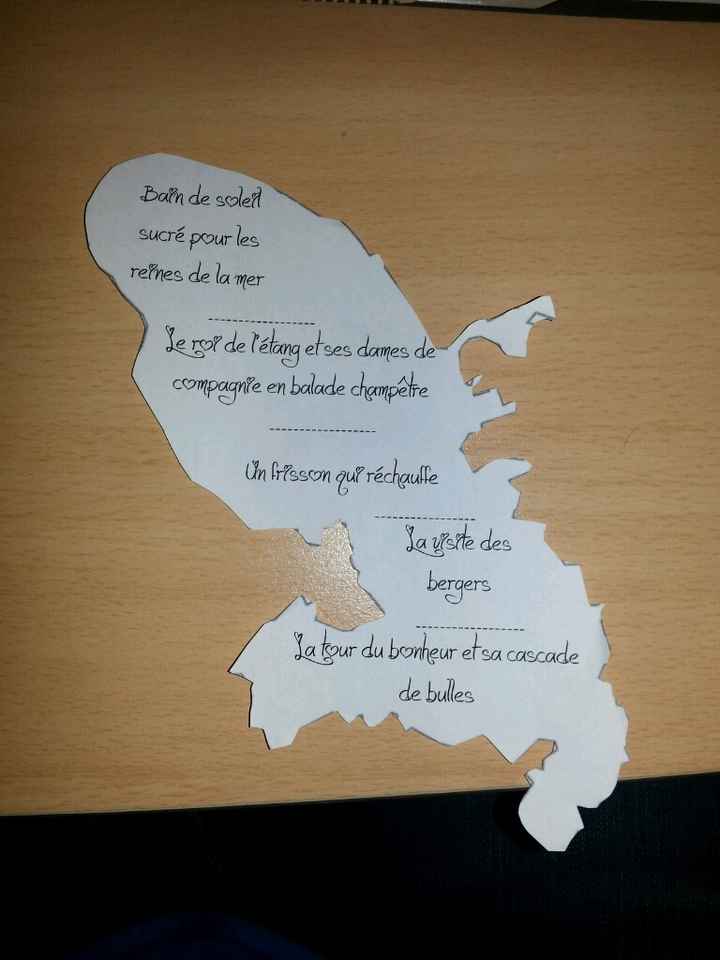 Bain de soleil
sucré pour les
reines de la mer
----------------
Le roi de l'étang et ses dames de
compagnie en balade champêtre
----------------
Un frisson qui réchauffe
----------------
La visite des
bergers
----------------
La tour du bonheur et sa cascade
de bulles